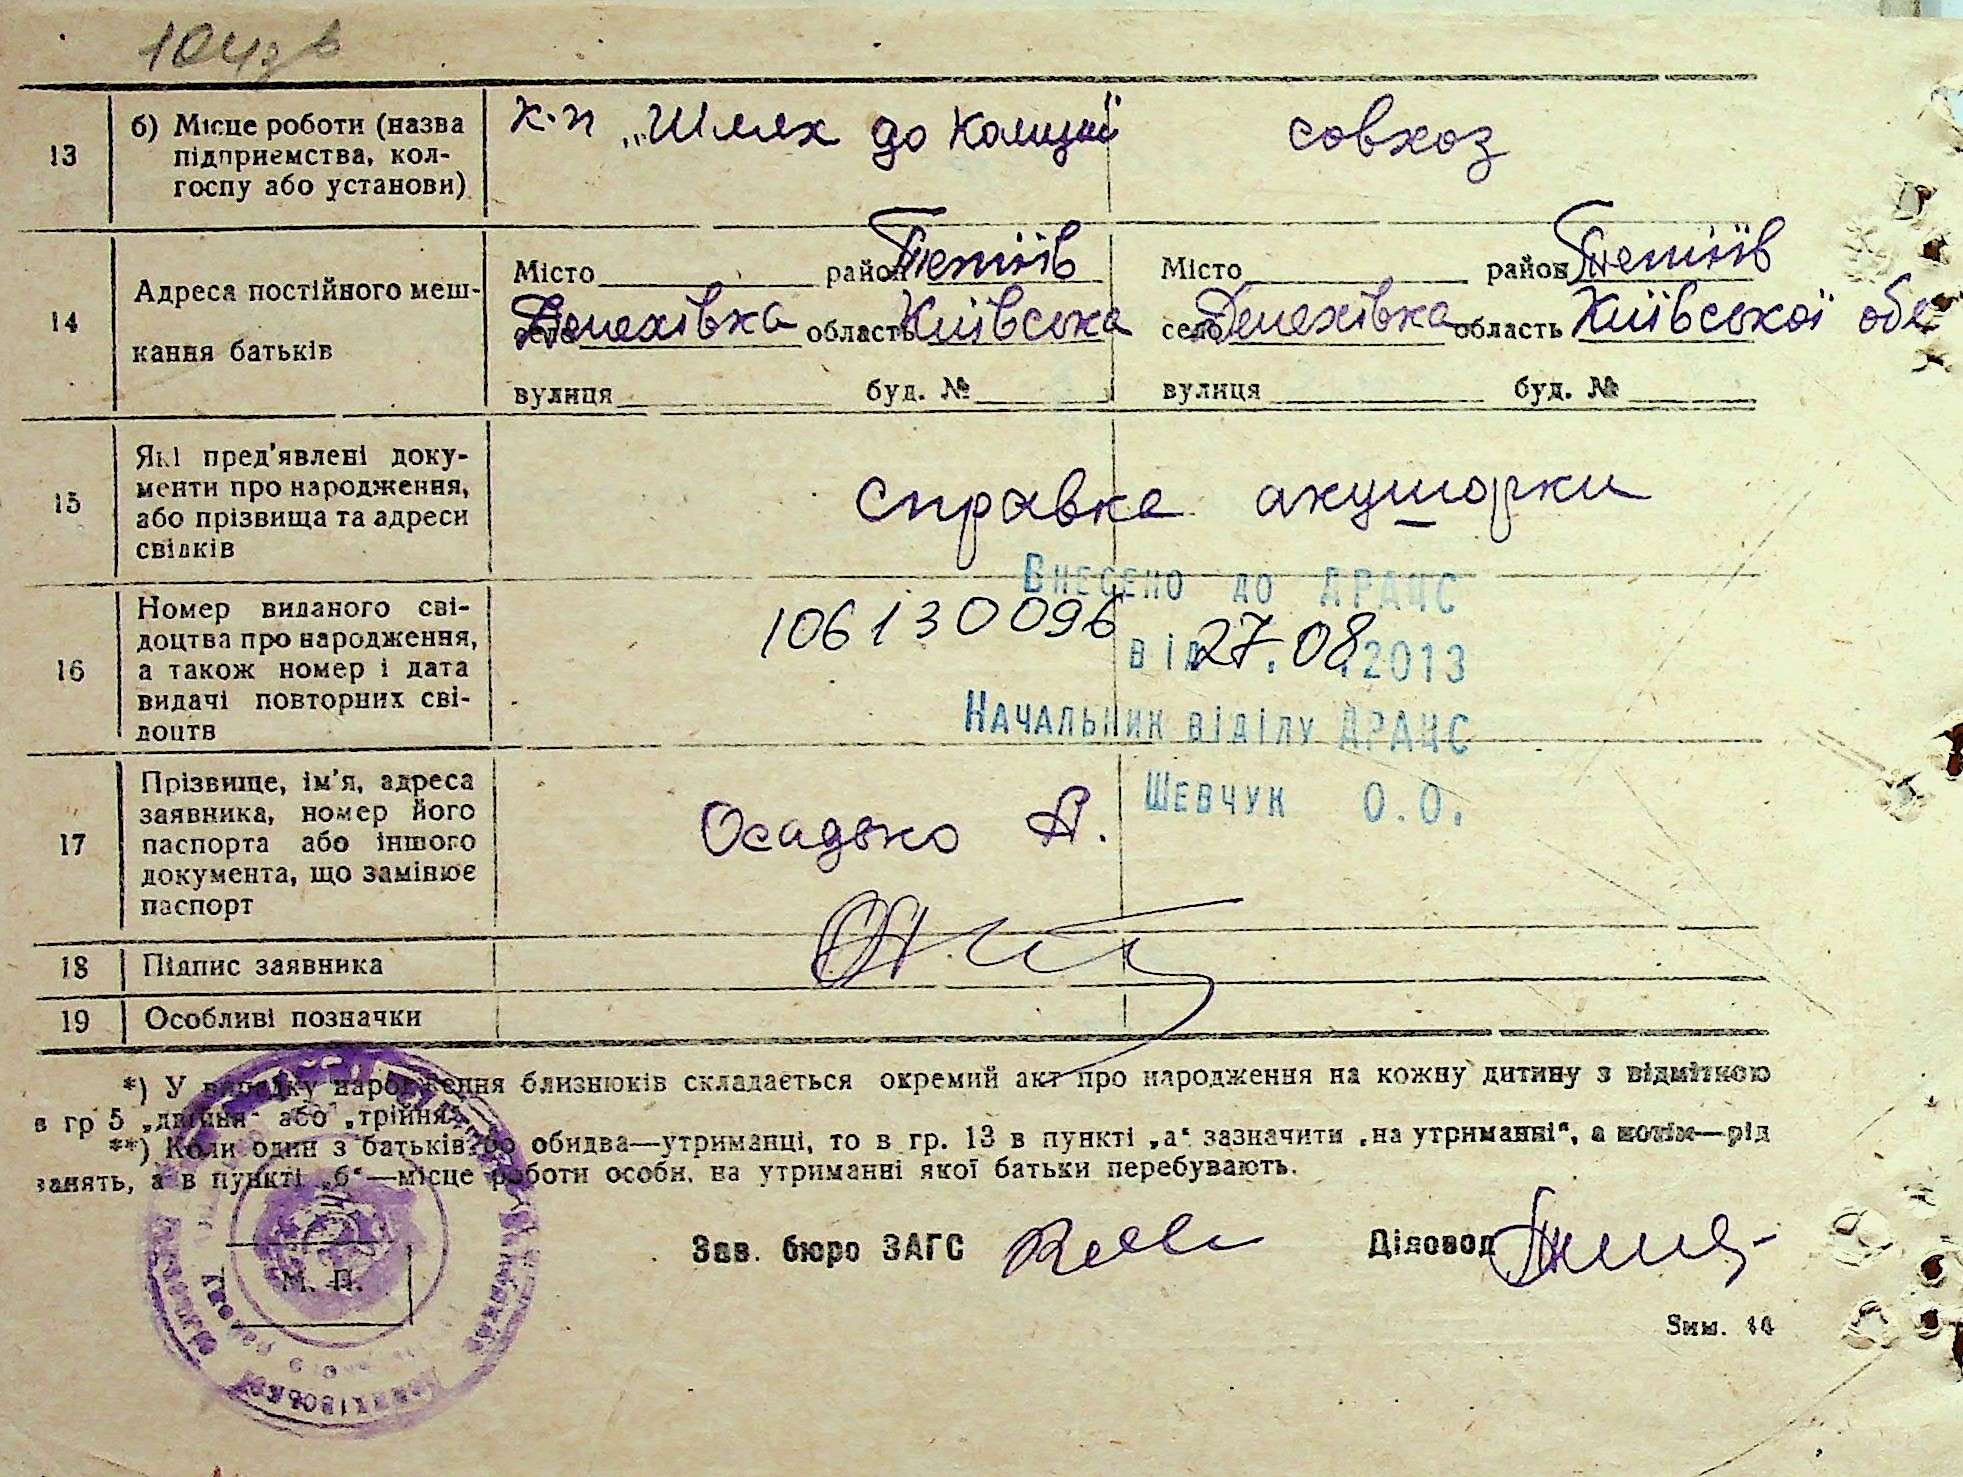 13
б) Місце роботи (назва
підприємства, кол-
госпу або установи)
к-п „Шлях до
совхоз
14
Адреса постійного меш-
кання батьків
Місто район Тетіїв
село Денехівка область Київська
вулиця буд. №
Місто район Тетіїв
село Денехівка область Київської обл
вулиця буд. №
15
Які пред'явлені доку-
менти про народження,
або прізвища та адреси
свідків
справка акушорки
16
Номер виданого сві-
доцтва про народження,
а також номер і дата
видачі повторних сві-
доцтв
106130096
Внесено до ДРАЦС
від 27.08.2013
Начальник відділу ДРАЦС
Шевчук О.О.
17
Прізвище, ім'я, адреса
заявника, номер його
паспорта або іншого
документа, що замінює
паспорт
Осадько А.
18
Підпис заявника
19
Особливі позначки
*) У випадку народження близнюків складається окремий акт про народження на кожну дитину з відміткою
в гр 5 „двійня“ або „трійня“.
**) Коли один з батьків або обидва—утриманці, то в гр. 13 в пункті „а“ зазначити „на утриманні“, а потім—рід
занять, а в пункті „б“—місце роботи особи, на утриманні якої батьки перебувають.
М. П.
Зав. бюро ЗАГС
Діловод
Зам. 14